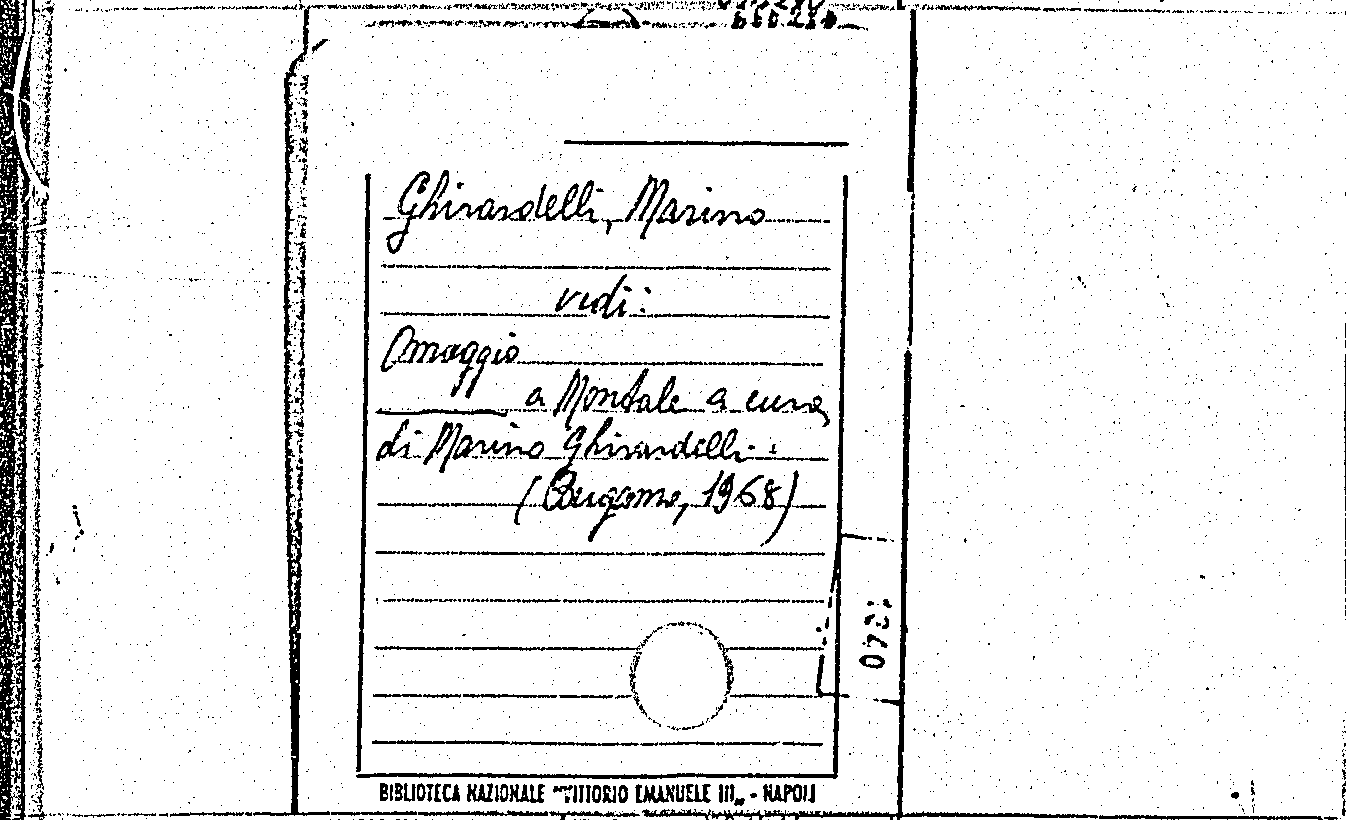 Ghirardelli, Marino
vedi:
Omaggio
a Montale a cura
di Marino Ghirardelli..
(Bergamo, 1968)
BIBLIOTECA NAZIONALE "VITTORIO EMANUELE III„ - NAPOLI